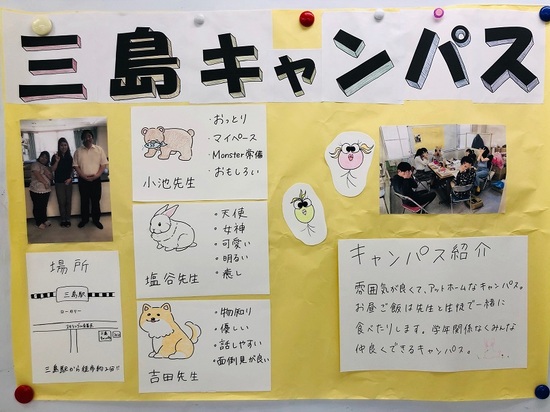 三島キャンパス
・おっとり
・マイペース
・Monster常備
・おもしろい
小池先生
・天使
・女神
・可愛い
・明るい
・癒し
塩谷先生
・物知り
・優しい
・話しやすい
・面倒見が良い
吉田先生
場所
三島駅
三島駅から徒歩約2分!!
キャンパス紹介
雰囲気が良くて、アットホームなキャンパス。
お昼ご飯は先生と生徒で一緒に
食べたりします。学年関係なくみんな
仲良くできるキャンパス。